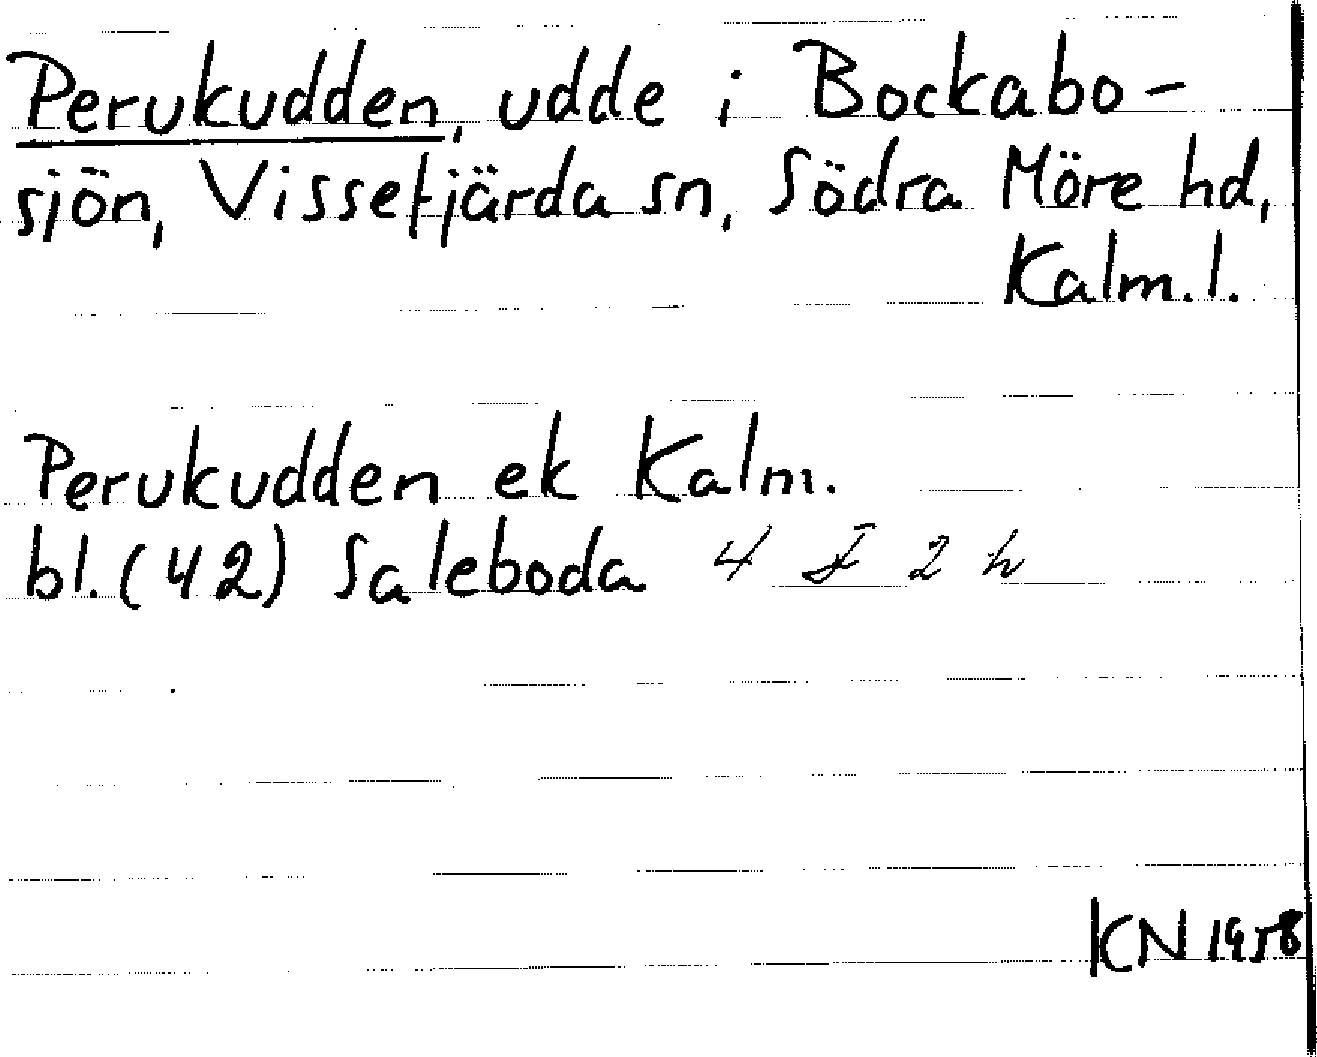 Perukudden, udde i Bockabo-
sjön, Vissefjärda sn, Södra Möre hd,
Kalm. l.
Perukudden ek Kalm.
bl. (42) Saleboda 4 F 2 h
KN 1958